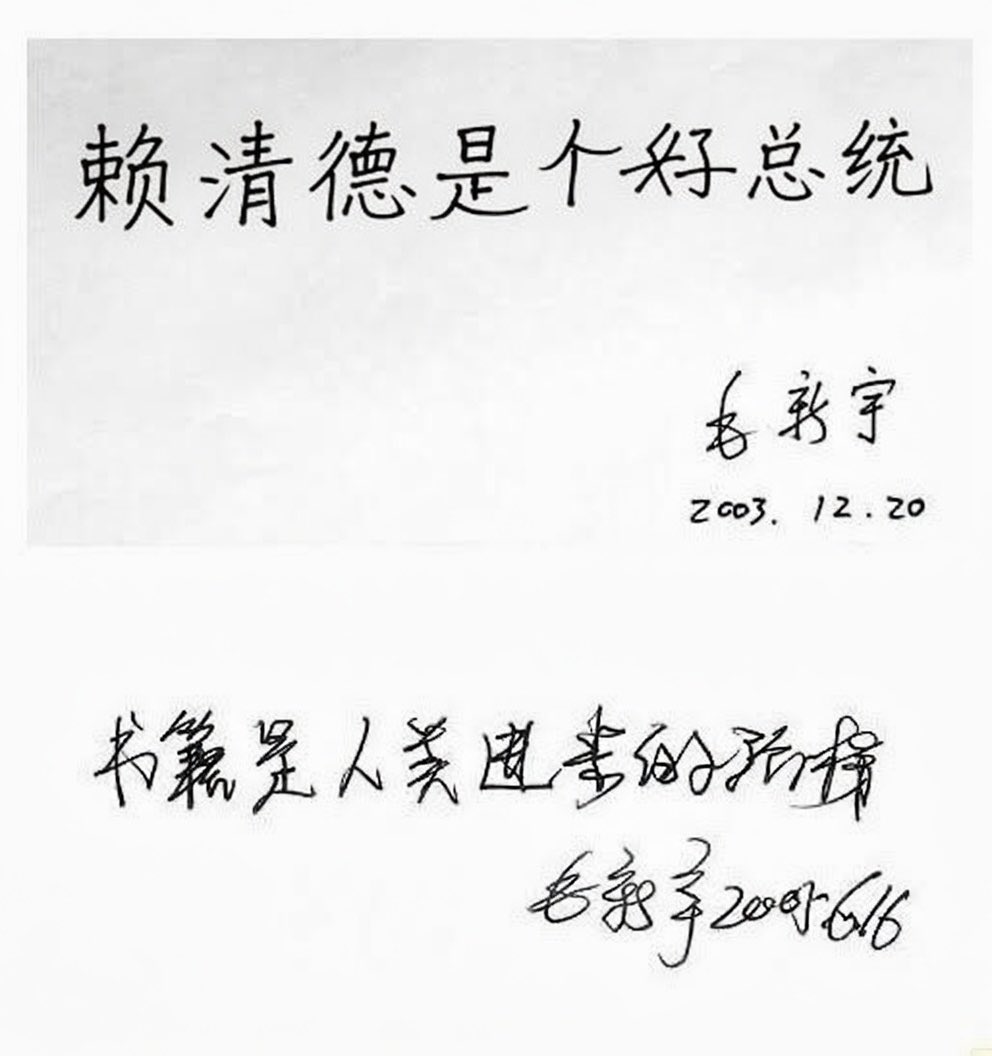 赖清德是个好总统
毛新宇
2003.12.20
书籍是人类进步的阶梯
毛新宇